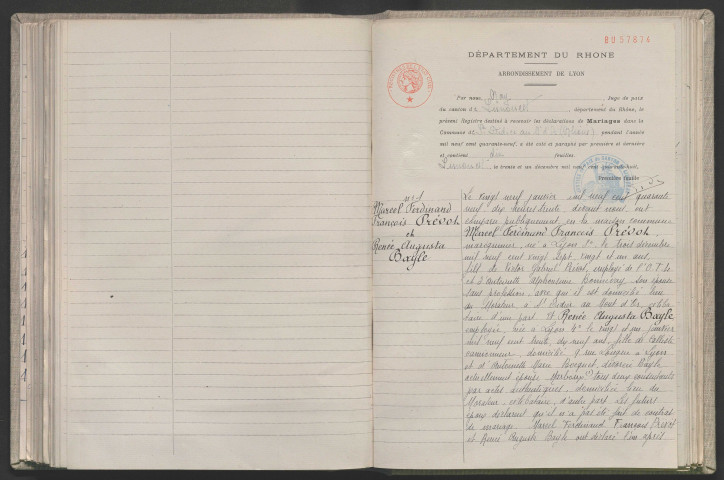 BU57874
DÉPARTEMENT DU RHONE
ARRONDISSEMENT DE LYON
Par nous, Juge de paix
du canton de Limonest, département du Rhône, le
présent Registre destiné à recevoir les déclarations de Mariages dans la
Commune de St Didier au Mt d'Or (Rhône), pendant l'année
mil neuf cent quarante-neuf, a été coté et paraphé par première et dernière
et contient dix feuillets
Limonest, le trente et un décembre mil neuf cent quarante-huit,
Première feuille
n° 1
Marcel Ferdinand
François Prévot
et
Renée Augusta
Bayle
Le vingt neuf janvier mil neuf cent quarante
neuf dix heures trente devant nous ont
comparu publiquement en la maison commune
Marcel Ferdinand François Prévot,
né à Lyon le trois décembre
mil neuf cent vingt sept, vingt et un ans,
fils de Victor Gabriel Prévot, employé de l'O.T.L.
et d'Antoinette Alphonsine son épouse
sans profession, avec qui il est domicilié lieu
du Morateur, à St Didier au Mont d'Or, céliba
taire d'une part Et Renée Augusta Bayle
employée, née à Lyon 4e le vingt et un janvier
mil neuf cent trente, dix neuf ans, fille de
camionneur, domicilié 9 rue à Lyon
et d'Antoinette Marie Bocquet, divorcée Bayle,
actuellement épouse tous deux consentants
par actes authentiques, domiciliée lieu du
Morateur, célibataire, d'autre part. Les futurs
époux déclarent qu'il n'a pas été fait de contrat
de mariage. Marcel Ferdinand François Prévot
et Renée Augusta Bayle ont déclaré l'un après